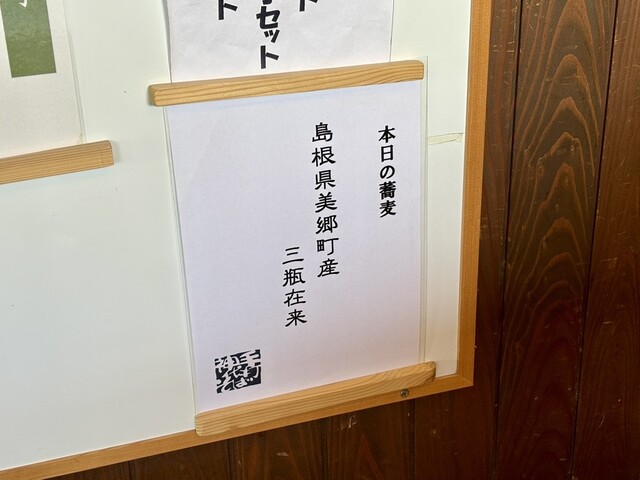 本日の蕎麦
島根県美郷町産
三瓶在来
セット
ト
ト